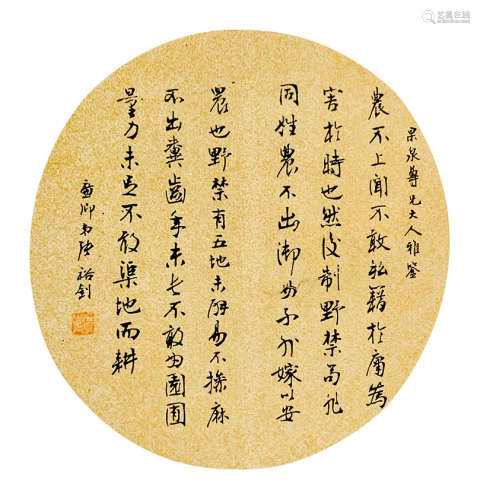 杲泉尊兄大人雅鑒
農不上聞不敢私籍於庸為
害於時也然後制野禁苟非
同姓農不出御女不外嫁以安
農也野禁有五地未辟易不操麻
不出糞齒年未長不敢為園囿
量力未足不敢渠地而耕
廉卿弟張裕釗